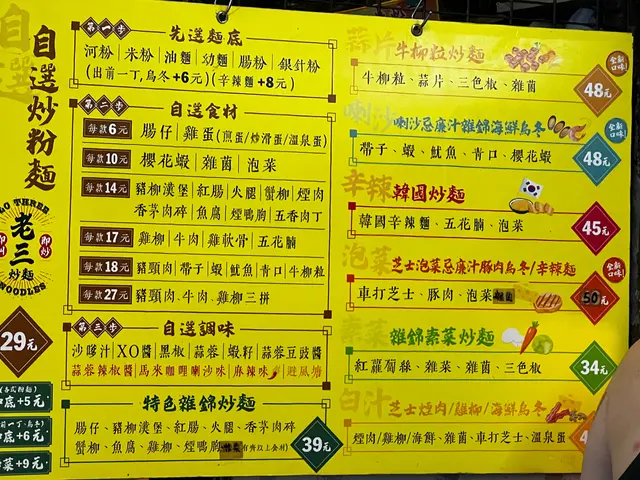 自選炒粉麵
老三
炒麵
NOODLES
即炒
29元
底+5元
底+6元
菜+9元
第一步
先選麵底
河粉|米粉|油麵|幼麵|腸粉|銀針粉
(出前一丁,烏冬+6元)(辛辣麵+8元)
第二步
自選食材
每款6元 腸仔|雞蛋(煎蛋/炒滑蛋/溫泉蛋)
每款10元 櫻花蝦|雜菌|泡菜
每款14元 豬柳漢堡|紅腸|火腿|蟹柳|煙肉
香茅肉碎|魚腐|煙鴨胸|五香肉丁
每款17元 雞柳|牛肉|雞軟骨|五花腩
每款18元 豬頸肉|帶子|蝦|魷魚|青口|牛柳粒
每款27元 豬頸肉、牛肉、雞柳三拼
第三步
自選調味
沙嗲汁|XO醬|黑椒|蒜蓉|蝦籽|蒜蓉豆豉醬
蒜蓉辣椒醬|馬來咖哩喇沙味|麻辣味|避風塘
特色雜錦炒麵
腸仔、豬柳漢堡、紅腸、火腿、香茅肉碎
蟹柳、魚腐、雞柳、煙鴨胸
39元
蒜片牛柳粒炒麵
牛柳粒、蒜片、三色椒、雜菌
全新口味!
48元
喇沙
喇沙忌廉汁雜錦海鮮烏冬
帶子、蝦、魷魚、青口、櫻花蝦
全新口味!
48元
辛辣
韓國炒麵
韓國辛辣麵、五花腩、泡菜
45元
泡菜
芝士泡菜忌廉汁豚肉烏冬/辛辣麵
車打芝士、豚肉、泡菜
全新口味!
50元
雜錦素菜炒麵
紅蘿蔔絲、雜菜、雜菌、三色椒
34元
白汁
芝士煙肉/雞柳/海鮮烏冬
煙肉/雞柳/海鮮、雜菌、車打芝士、溫泉蛋